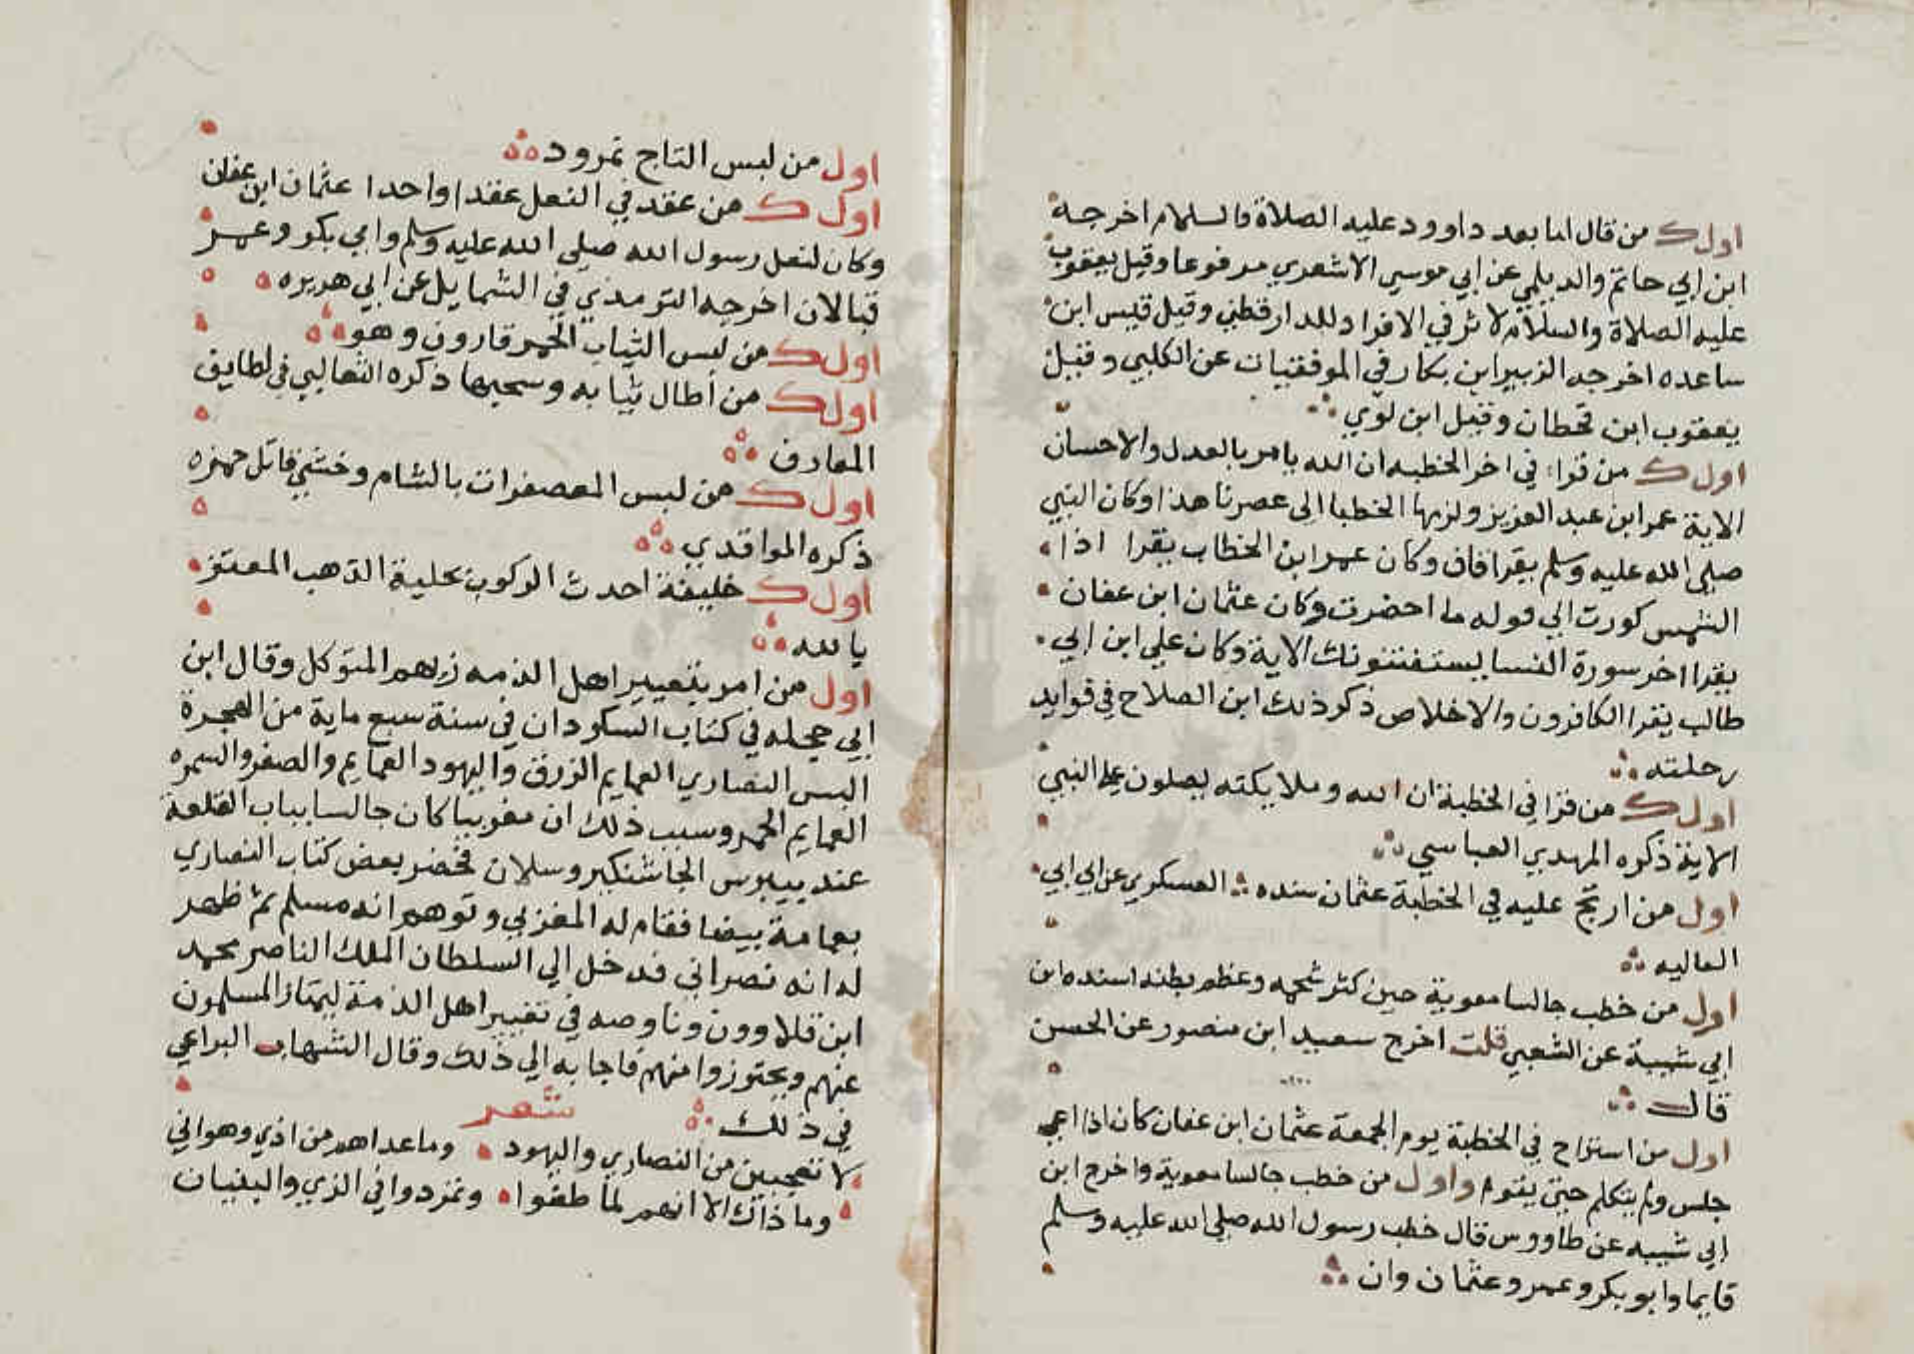 اول من قال اما بعد داوود عليه الصلاة والسلام اخرجه
ابن ابي حاتم والديلمي عن ابي موسي الاشعري مرفوعا وقيل يعقوب
عليه الصلاة والسلام لاثر في الافراد للدارقطني وقيل قيس ابن
ساعده اخرجه الزبير ابن بكار في الموفقيات عن الكلبي وقيل
يعقوب ابن قحطان وقيل ابن لوي
اول من قراء في اخر الخطبه ان الله يامر بالعدل والاحسان
الاية عمر ابن عبد العزيز ولزمها الخطبا الى عصرنا هذا وكان النبي
صلى الله عليه وسلم يقرا قاف وكان عمر ابن الخطاب يقرا اذا
الشمس كورت الي قوله ما احضرت وكان عثمان ابن عفان
يقرا اخر سورة النسا يستفتونك الاية وكان علي ابن ابي
طالب يقرا الكافرون والاخلاص ذكر ذلك ابن الصلاح في فوايد
رحلته
اول من قرا في الخطبة ان الله وملايكته يصلون على النبي
الاية ذكره المهدي العباسي
اول من ارتج عليه في الخطبة عثمان سنده العسكري عن ابي ابي
العاليه
اول من خطب جالسا معوية حين كثر شحمه وعظم بطنه اسنده ابن
ابي شيبة عن الشعبي قلت اخرج سعيد ابن منصور عن الحسن
قال
اول من استراح في الخطبة يوم الجمعة عثمان ابن عفان كان اذا اعي
جلس ولم يتكلم حتي يقوم واول من خطب جالسا معوية واخرج ابن
ابي شيبه عن طاووس قال خطب رسول الله صلى الله عليه وسلم
قايما وابو بكر وعمر وعثمان وان
اول من لبس التاج نمرود
اول من عقد في النعل عقدا واحدا عثمان ابن عفان
وكان لنعل رسول الله صلى الله عليه وسلم وابي بكر وعمر
قبالان اخرجه الترمذي في الشمايل عن ابي هريره
اول من لبس الثياب الحمر قارون وهو
اول من اطال ثيابه وسحبها ذكره الثعالبي في لطايف
المعارف
اول من لبس المعصفرات بالشام وخشي قاتل حمزه
ذكره الواقدي
اول خليفة احدث الركوب بحلية الذهب المعتز
بالله
اول من امر بتغيير اهل الذمه زيهم المتوكل وقال ابن
ابي حجله في كتاب السكردان في سنة سبع ماية من الهجرة
البس النصاري العمايم الزرق واليهود العمايم والصفر والسمره
العمايم الحمر وسبب ذلك ان مغربيا كان جالسا بباب القلعة
عند بيبرس الجاشنكير وسلان فحضر بعض كتاب النصاري
بعمامة بيضا فقام له المغربي وتوهم انه مسلم ثم ظهر
له انه نصراني فدخل الي السلطان الملك الناصر محمد
ابن قلاوون وناوصه في تغيير اهل الذمة ليمتاز المسلمون
عنهم ويحتوزوا منهم فاجابه الي ذلك وقال الشهاب البراعي
في ذلك شعر
لا تعجبين من النصاري واليهود وما عداهم من اذي وهواني
وما ذاك الا انهم لما طغوا وتمردوا في الزي والبنيان